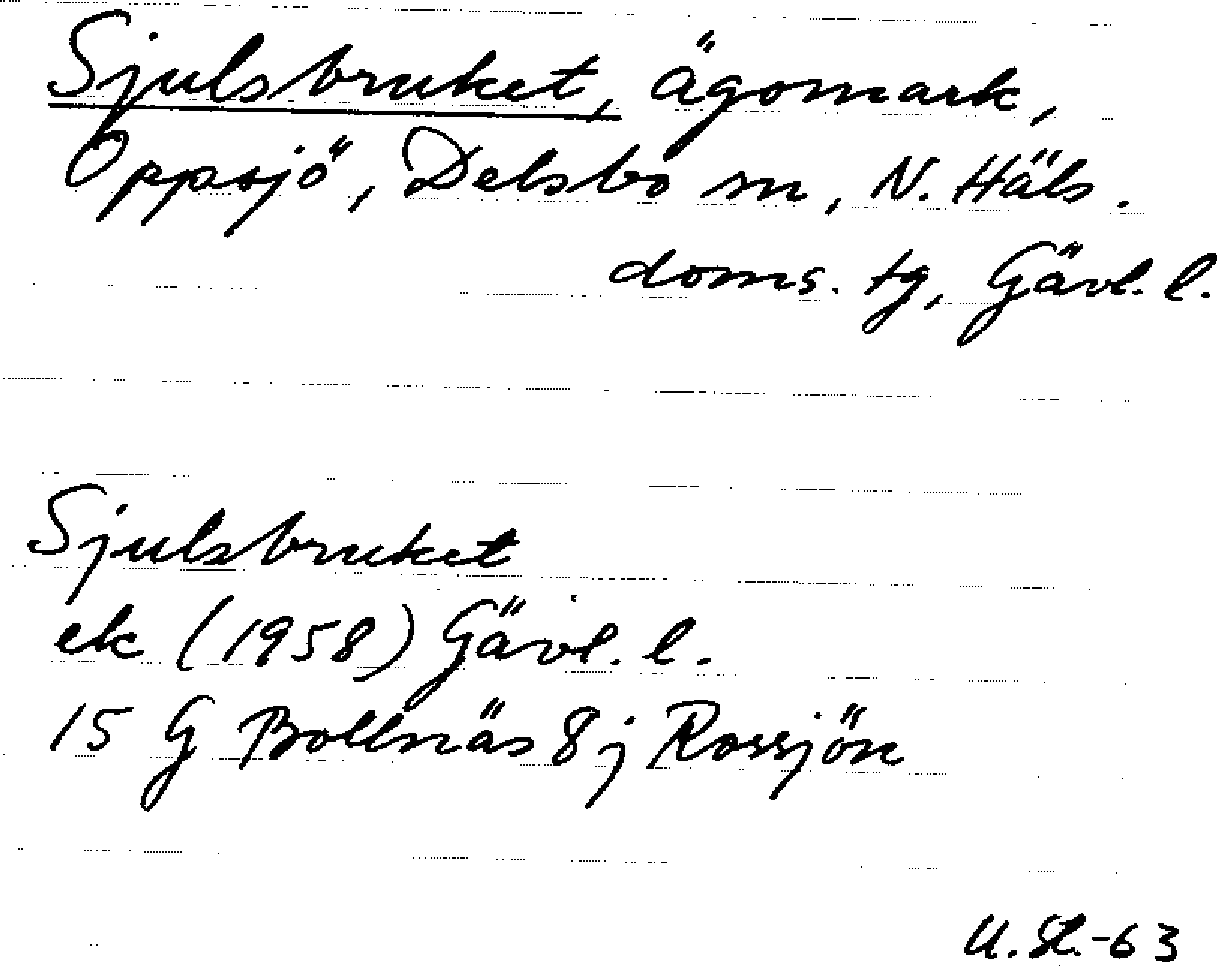 Sjulsbruket, ägomark,
Oppsjö, Delsbo sn, N. Häls.
doms. tg, Gävl. l.
Sjulsbruket
ek (1958) Gävl. l.
15 G Bollnäs 8j Rossjön
U. St.-63